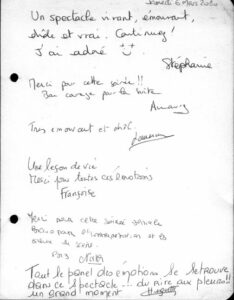 Samedi 6 Mars
Un spectacle vivant, émouvant,
drôle et vrai. Continuez !
J'ai adoré
Stéphanie
Merci pour cette soirée !!
Bon courage pour la suite
Très émouvant et
Une leçon de vie
Merci pour toutes ces émotions
Françoise
Merci pour cette soirée
Bravo pour l'interprétation et
Tout le panel des émotions se retrouve
dans ce spectacle... du rire aux pleurs !!
un grand moment